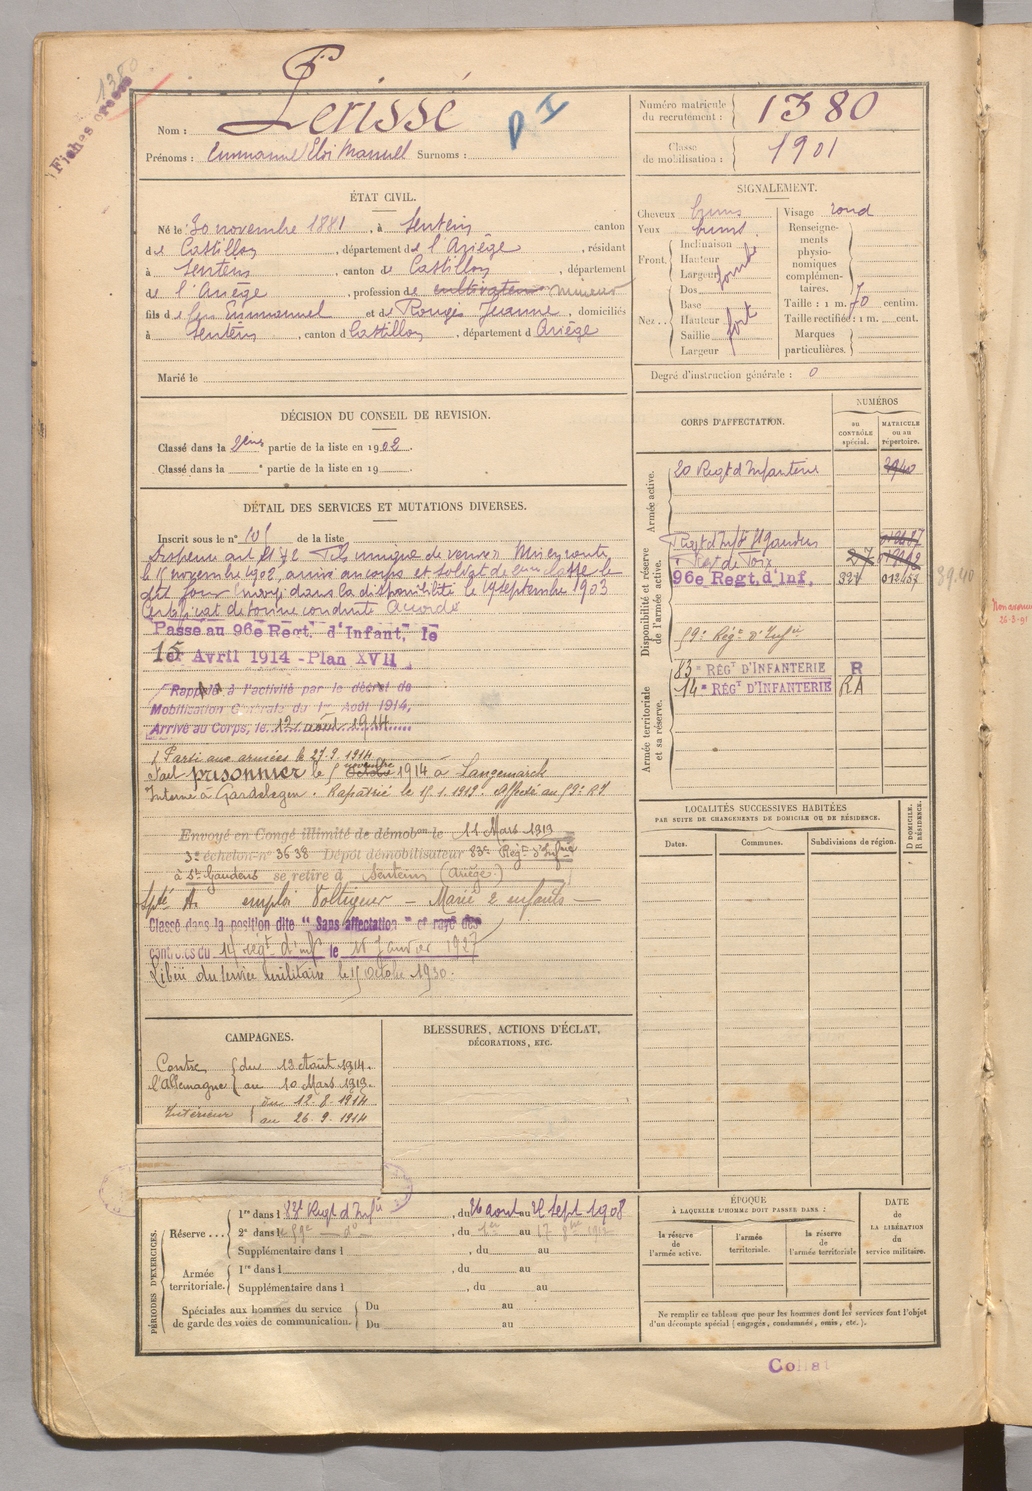 1380
Fiches
Perissé
P I
Nom :
Prénoms : Emmanuel Eloi Manuel Surnoms :
Numéro matricule du recrutement : 1380
Classe de mobilisation : 1901
ÉTAT CIVIL.
Né le 30 novembre 1881, à Sentein canton
de Castillon, département de l'Ariège, résidant
à Sentein, canton de Castillon, département
de l'Ariège, profession de cultivateur mineur
fils de feu Emmanuel et de Rougé Jeanne, domiciliés
à Sentein, canton d Castillon, département d Ariège
Marié le
SIGNALEMENT.
Cheveux bruns
Yeux bruns
Front. Inclinaison
Hauteur
Largeur
Nez.. Dos
Base
Hauteur fort
Saillie
Largeur
Visage rond
Renseignements physionomiques complémentaires.
Taille : 1 m. 70 centim.
Taille rectifiée : 1 m. cent.
Marques particulières.
Degré d'instruction générale : 0
DÉCISION DU CONSEIL DE REVISION.
Classé dans la 2eme partie de la liste en 1902.
Classé dans la e partie de la liste en 19
DÉTAIL DES SERVICES ET MUTATIONS DIVERSES.
Inscrit sous le n° 105 de la liste
Dispensé art 21 § 2 Fils unique de veuve. Mis en route
le 15 novembre 1902, arrivé au corps et soldat de 2eme classe le
dit jour. Envoyé dans la disponibilité le 19 septembre 1903
Certificat de bonne conduite Accordé
Passé au 96e Regt. d'Infant, le
15 Avril 1914 - Plan XVII
Rappelé à l'activité par le décret de
Mobilisation Générale du 1er Août 1914,
Arrivé au Corps, le 12 août 1914
Parti aux armées le 27.9.1914
Fait prisonnier le 5 octobre novembre 1914 à Langemarck
Interné à Gardelegen. Rapatrié le 15.1.1919. Affecté au 59e RI
Envoyé en Congé illimité de démobon le 11 Mars 1919
3e échelon n° 3638 Dépôt démobilisateur 83e Régt d'Infrie
à St Gaudens se retire à Sentein (Ariège)
Apte A. emploi Voltigeur - Marié 2 enfants -
Classé dans la position dite "Sans affectation" et rayé des
contrôles du 14 régt d'inf le 15 Janvier 1927
Libéré du service militaire le 15 octobre 1930.
CORPS D'AFFECTATION.
NUMÉROS
au CONTRÔLE spécial.
MATRICULE ou au répertoire.
Armée active.
20 Regt d'Infanterie
Disponibilité et réserve de l'armée active.
Regt d'Inft St Gaudens
Regt de Foix
96e Regt. d'Inf.
59e Régt d'Infie
Armée territoriale et sa réserve.
83e RÉGT D'INFANTERIE R
14e RÉGT D'INFANTERIE RA
LOCALITÉS SUCCESSIVES HABITÉES
PAR SUITE DE CHANGEMENTS DE DOMICILE OU DE RÉSIDENCE.
Dates.
Communes.
Subdivisions de région.
D DOMICILE.
R RÉSIDENCE.
CAMPAGNES.
Contre l'Allemagne du 13 Août 1914.
au 10 Mars 1919.
Intérieur du 12.8.1914
au 26.9.1914
BLESSURES, ACTIONS D'ÉCLAT,
DÉCORATIONS, ETC.
PÉRIODES D'EXERCICES.
Réserve... 1re dans l 83e Regt d'Infie, du 26 aout au 22 Sept 1908
2e dans le 59e do, du 1er au 17 8bre 1912
Supplémentaire dans l, du au
Armée territoriale. 1re dans l, du au
Supplémentaire dans l, du au
Spéciales aux hommes du service de garde des voies de communication. Du au
Du au
ÉPOQUE
À LAQUELLE L'HOMME DOIT PASSER DANS :
la réserve de l'armée active.
l'armée territoriale.
la réserve de l'armée territoriale
DATE de LA LIBÉRATION du service militaire.
Ne remplir ce tableau que pour les hommes dont les services font l'objet
d'un décompte spécial (engagés, condamnés, omis, etc.).